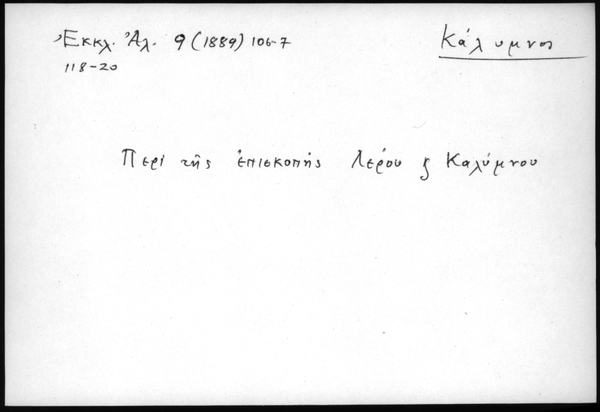 Ἐκκλ. Ἀλ. 9 (1889) 106-7
118-20
Κάλυμνος
Περὶ τῆς ἐπισκοπῆς Λέρου ϗ Καλύμνου